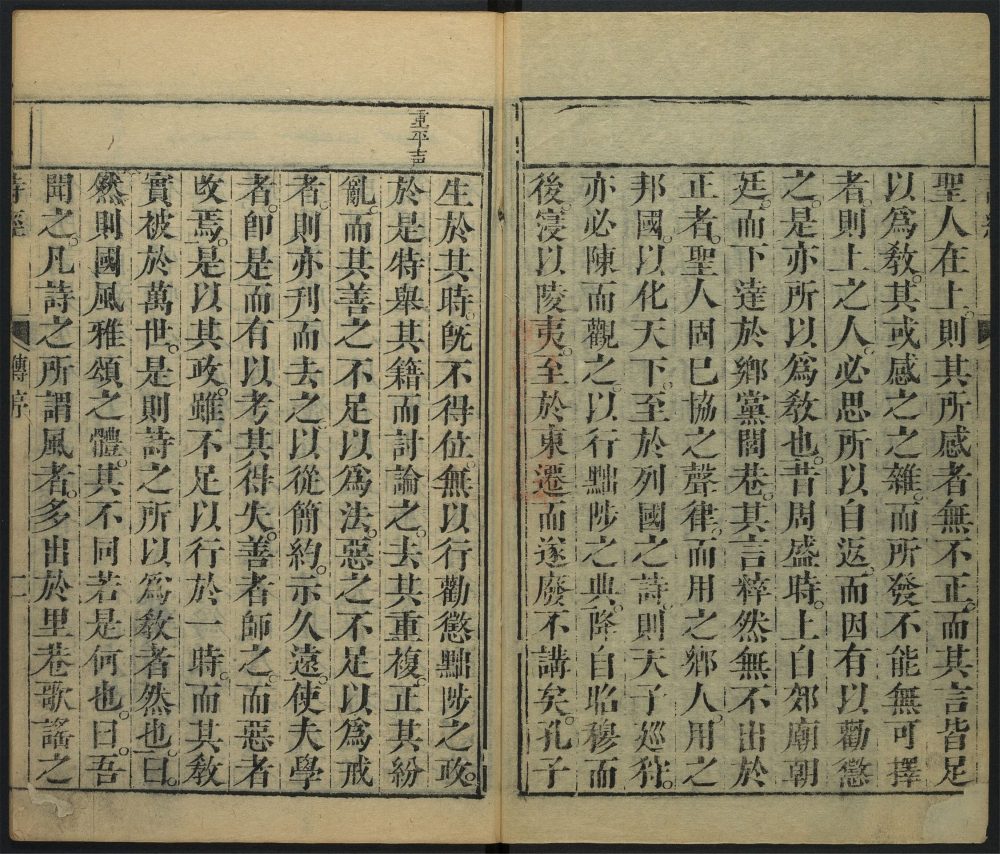 聖人在上。則其所感者無不正。而其言皆足
以爲教。其或感之之雜。而所發不能無可擇
者。則上之人。必思所以自返。而因有以勸懲
之。是亦所以爲教也。昔周盛時。上自郊廟朝
廷。而下達於鄉黨閭巷。其言粹然無不出於
正者。聖人固已協之聲律。而用之鄉人。用之
邦國。以化天下。至於列國之詩。則天子廵狩。
亦必陳而觀之。以行黜陟之典。降自昭穆而
後。寖以陵夷。至於東遷。而遂廢不講矣。孔子
重平声
生於其時。旣不得位。無以行勸懲黜陟之政。
於是特舉其籍而討論之。去其重複。正其紛
亂。而其善之不足以爲法。惡之不足以爲戒
者。則亦刋而去之。以從簡約。示久遠。使夫學
者。卽是而有以考其得失。善者師之。而惡者
改焉。是以其政。雖不足以行於一時。而其教
實被於萬世。是則詩之所以爲教者然也。曰。
然則國風雅頌之體。其不同若是何也。曰。吾
聞之。凡詩之所謂風者。多出於里巷歌謠之
詩經 傳序 二